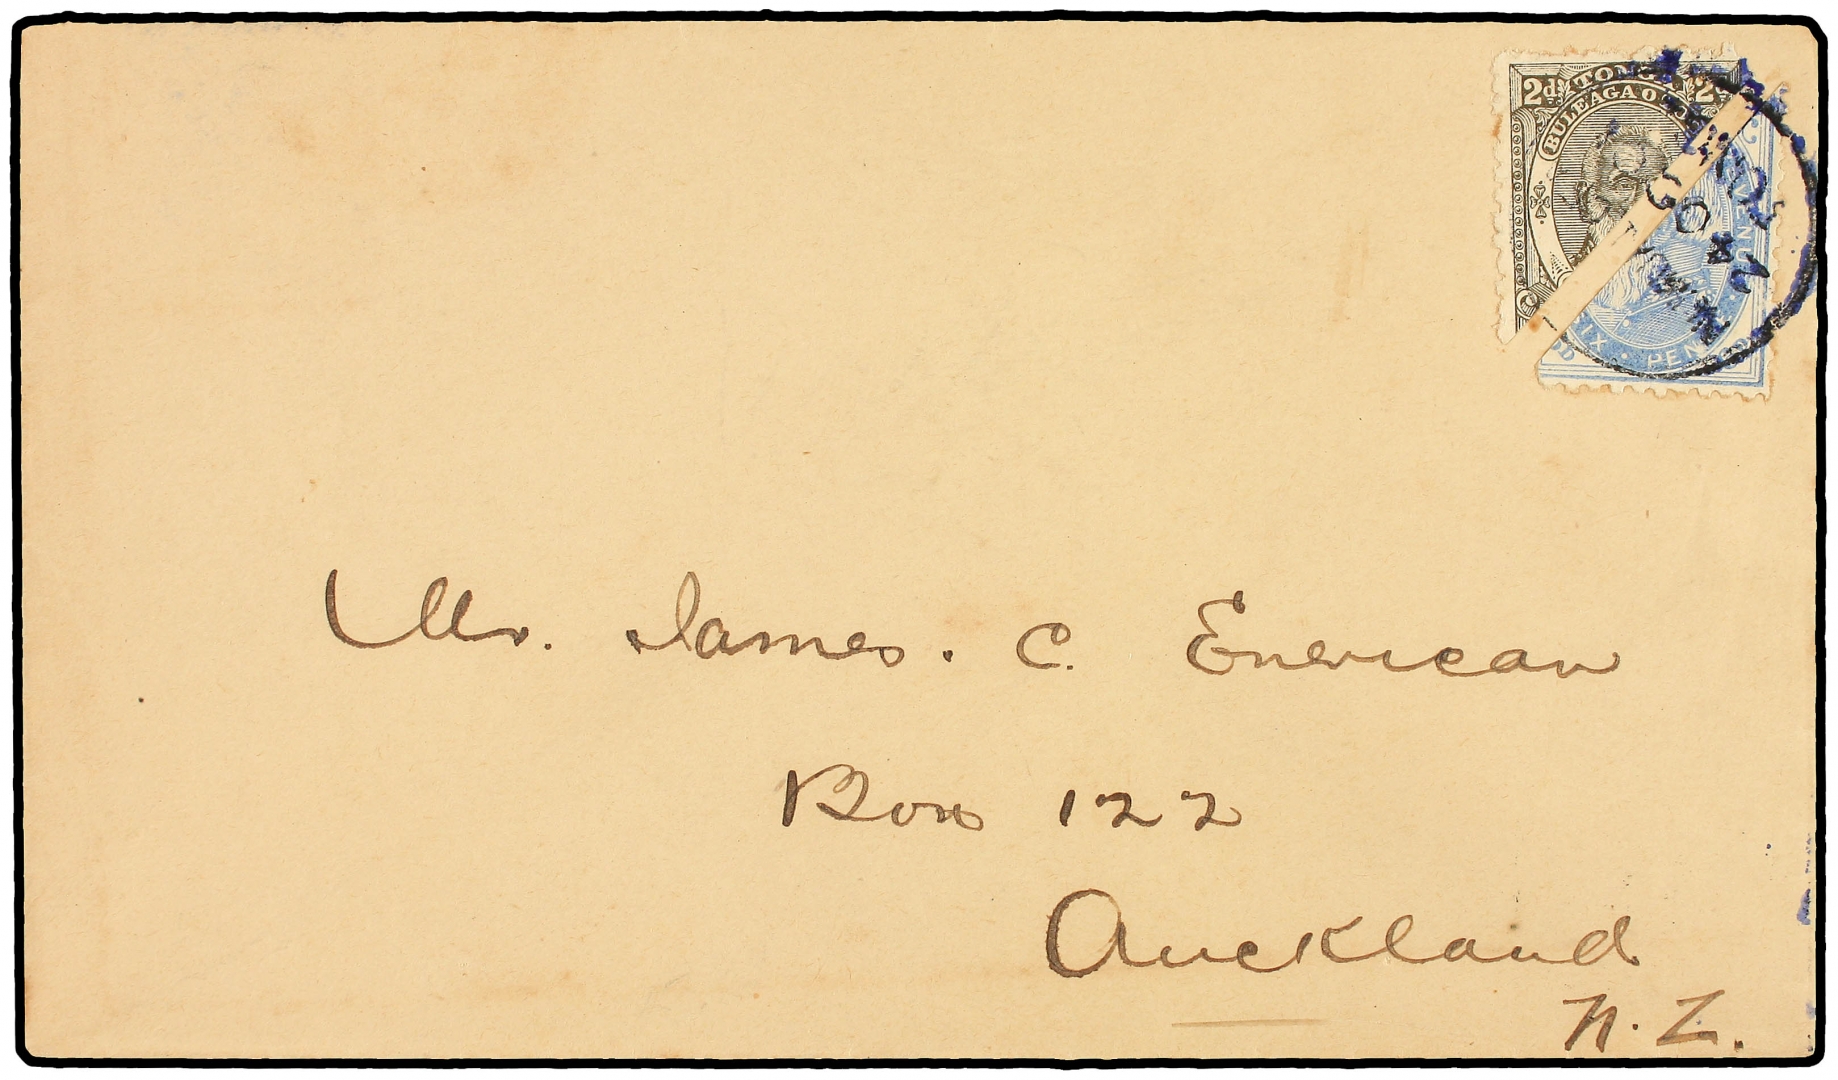 2d. TONGA 2d.
BULEAGA O
REVENUE
SIX · PENCE
Mr. James. C. Enerican
Box 122
Auckland
N. Z.